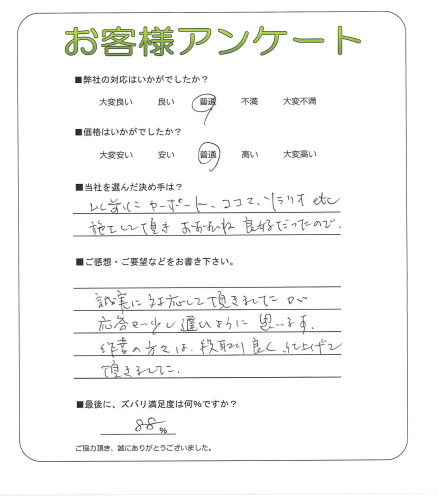 お客様アンケート
■弊社の対応はいかがでしたか？
大変良い 良い 普通 不満 大変不満
■価格はいかがでしたか？
大変安い 安い 普通 高い 大変高い
■当社を選んだ決め手は？
以前に カーポート、ココマ、ソラリオ etc
施工して頂き おおむね 良好だったので、
■ご感想・ご要望などをお書き下さい。
誠実に対応して頂きましたが
応答が少し遅いように思います。
作業の方々は、段取り良く、仕上げて
頂きました。
■最後に、ズバリ満足度は何%ですか？
88%
ご協力頂き、誠にありがとうございました。